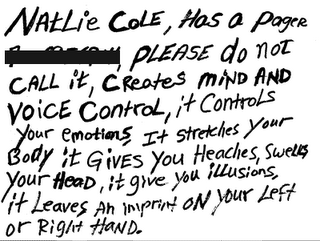 NATLIE COLE, HAS a PAGER
PLEASE do NOT
CALL iT, CREATES MIND AND
VOICE CONTROL, iT CONTROLS
YOUR EMOTIONS IT STRETCHES YOUR
BODY iT GIVES YOU HEACHES, SWELLS
YOUR HEAD, iT GIVE YOU ILLUSIONS,
iT LEAVES AN IMPRINT ON YOUR LEFT
OR RIGHT HAND.